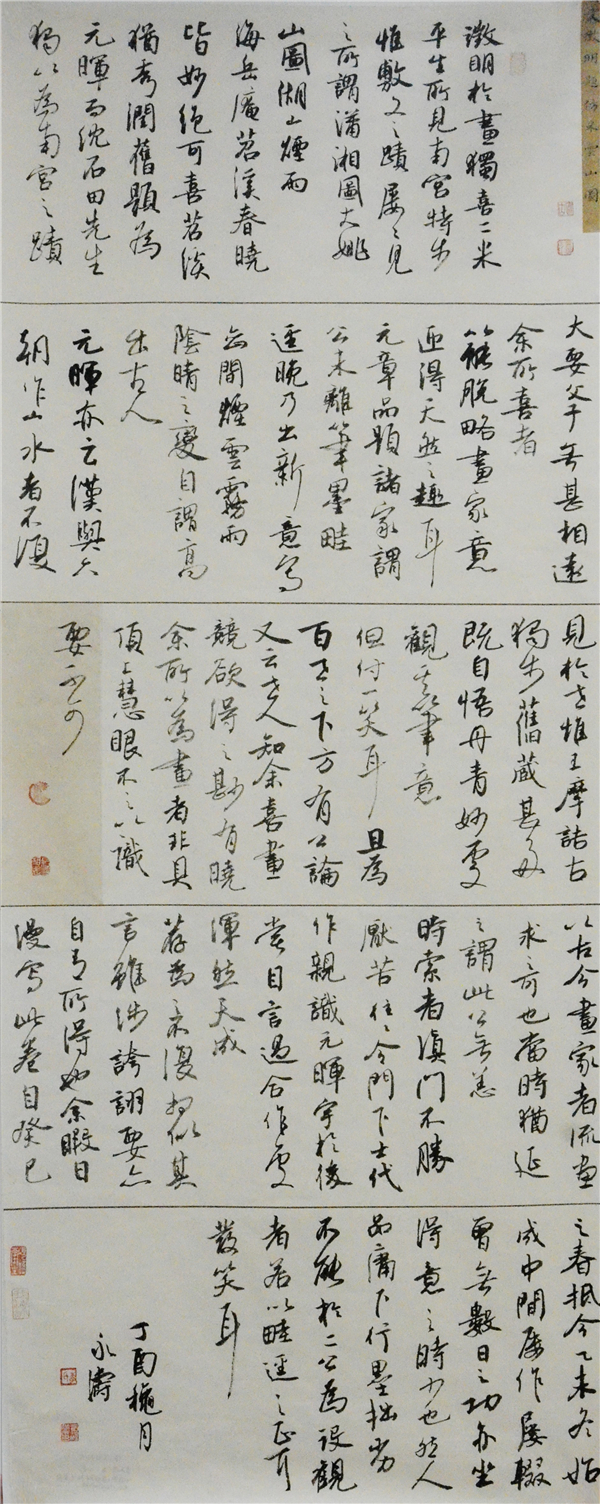 文徵明題仿米雲山圖
徵明於畫獨喜二米
平生所見南宮特少
惟敷文之蹟屢屢見
之所謂瀟湘圖大姚
山圖湖山煙雨
海岳庵苕溪春曉
皆妙絕可喜苕溪
猶秀潤舊題為
元暉而沈石田先生
獨以為南宮之蹟
大要父子無甚相遠
余所喜者
能脫略畫家意
匠得天然之趣耳
元章品題諸家謂
公未離筆墨畦
逕晚乃出新意寫
雲間煙雲霧雨
陰晴之變自謂高
出古人
元暉亦云漢與六
朝作山水者不復
見於世惟王摩詰古
獨步舊蔵甚多
既自悟丹青妙處
觀其筆意
但付一笑耳且為
百世之下方有公論
又云世人知余喜畫
競欲得之尠有曉
余所以為畫者非具
頂上慧眼不足以識
要不可
以古今畫家者流畫
求之可也當時猶延
之謂此公無恙
時索者填門不勝
厭苦往往令門下士代
作親識元暉字於後
嘗自言遇合作處
渾然天成
荐為之不復相似其
言雖涉誇詡要亦
自有所得也余暇日
漫寫此卷自癸巳
之春抵今乙未冬始
成中間屢作屢輟
曾無數日之功亦坐
得意之時少也然人
品庸下行墨拙劣
不能於二公為役觀
者若以畦逕之正可
發笑耳
丁酉穐月
永濤